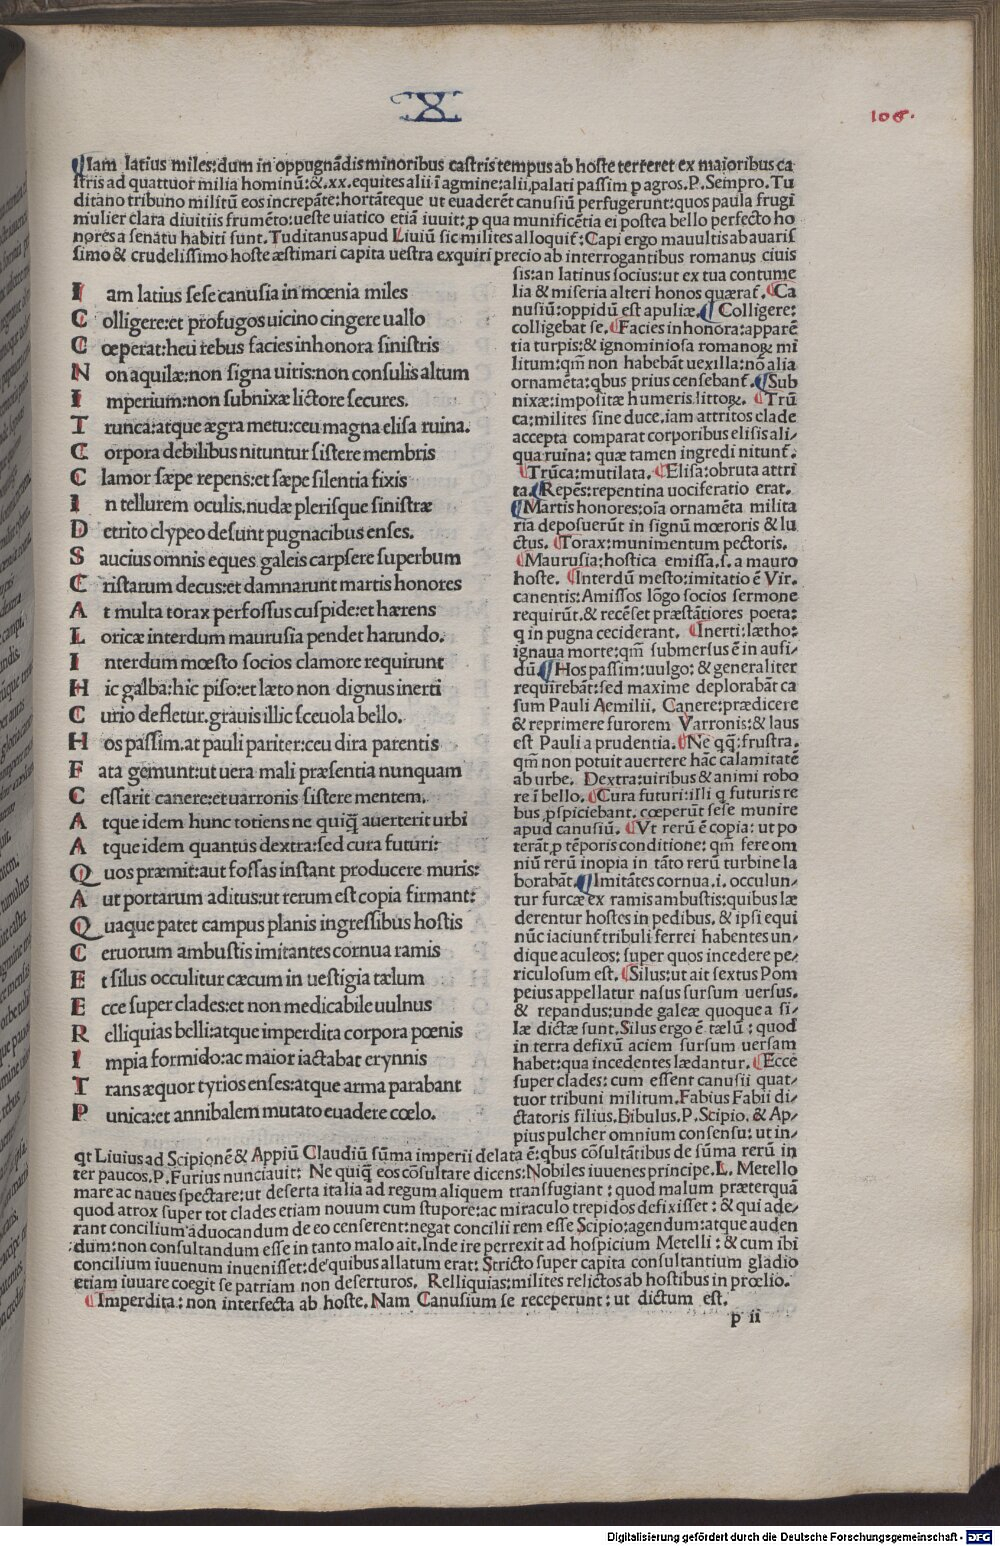 X
106.
¶Iam latius miles:dum in oppugnādis minoribus castris tempus ab hoste tereret ex maioribus ca
stris ad quattuor milia hominū:&.xx.equites alii ī agmine:alii,palati passim p agros.P.Sempro.Tu
ditano tribuno militū eos increpāte:hortāteque ut euaderēt canusiū perfugerunt:quos paula frugi
mulier clara diuitiis frumēto:ueste uiatico etiā iuuit:p qua munificētia ei postea bello perfecto ho
nores a senatu habiti sunt.Tuditanus apud Liuiū sic milites alloquit̄:Capi ergo mauultis ab auaris
simo & crudelissimo hoste æstimari capita uestra exquiri precio ab interrogantibus romanus ciuis
I am latius sese canusia in mœnia miles
C olligere:et profugos uicino cingere uallo
C œperat:heu rebus facies inhonora sinistris
N on aquilæ:non signa uitis:non consulis altum
I mperium:non subnixæ lictore secures.
T runca:atque ægra metu:ceu magna elisa ruina.
C orpora debilibus nituntur sistere membris
C lamor sæpe repens:et sæpe silentia fixis
I n tellurem oculis.nudæ plerisque sinistræ
D etrito clypeo desunt pugnacibus enses.
S aucius omnis eques galeis carpsere superbum
C ristarum decus:et damnarunt martis honores
A t multa torax perfossus cuspide:et hærens
L oricæ interdum maurusia pendet harundo.
I nterdum mœsto socios clamore requirunt
H ic galba:hic piso:et læto non dignus inerti
C urio defletur.grauis illic sceuola bello.
H os passim.at pauli pariter:ceu dira parentis
F ata gemunt:ut uera mali præsentia nunquam
C essarit canere:et uarronis sistere mentem.
A tque idem hunc totiens ne quiq̄ auerterit urbi
A tque idem quantus dextra:sed cura futuri:
Q uos præmit:aut fossas instant producere muris:
A ut portarum aditus:ut rerum est copia firmant:
Q uaque patet campus planis ingressibus hostis
C eruorum ambustis imitantes cornua ramis
E t silus occulitur cæcum in uestigia tælum
E cce super clades:et non medicabile uulnus
R elliquias belli:atque imperdita corpora pœnis
I mpia formido:ac maior iactabat erynnis
T rans æquor tyrios enses:atque arma parabant
P unica:et annibalem mutato euadere cœlo.
sis:an latinus socius:ut ex tua contume
lia & miseria alteri honos quærat̄.¶Ca
nusiū:oppidū est apuliæ.¶Colligere:
colligebat se.¶Facies inhonora:apparē
tia turpis:& ignominiosa romanoꝝ mi
litum:qm̄ non habebāt uexilla:nō alia
ornamēta:qbus prius censebant̄.¶Sub
nixæ:impositæ humeris littoꝝ. ¶Trū
ca:milites sine duce,iam attritos clade
accepta comparat corporibus elisis ali/
qua ruina: quæ tamen ingredi nitunt̄.
¶Trūca:mutilata.¶Elisa:obruta attri
ta.¶Repēs:repentina uociferatio erat.
¶Martis honores:oīa ornamēta milita
ria deposuerūt in signū mœroris & lu
ctus. ¶Torax:munimentum pectoris.
¶Maurusia:hostica emissa,s.a mauro
hoste. ¶Interdū mesto:imitatio ē Vir.
canentis:Amissos lōgo socios sermone
requirūt.& recēset præstātiores poeta:
q in pugna ceciderant. ¶Inerti:lætho:
ignaua morte:qm̄ submersus ē in aufi/
dū.¶Hos passim:uulgo: & generaliter
requirebāt:sed maxime deplorabāt ca
sum Pauli Aemilii. Canere:prædicere
& reprimere furorem Varronis:& laus
est Pauli a prudentia.¶Ne qq̄:frustra.
qm̄ non potuit auertere hāc calamitatē
ab urbe. Dextra:uiribus & animi robo
re ī bello.¶Cura futuri:illi q futuris re
bus pspiciebant.cœperūt sese munire
apud canusiū. ¶Vt rerū ē copia: ut po
terāt,p tēporis conditione: qm̄ fere om
niū rerū inopia in tāto rerū turbine la
borabāt.¶Imitātes cornua.i.occulun/
tur furcæ ex ramis ambustis:quibus læ
derentur hostes in pedibus.& ipsi equi
nūc iaciunt̄ tribuli ferrei habentes un/
dique aculeos: super quos incedere pe/
riculosum est.¶Silus:ut ait sextus Pom
peius appellatur nasus sursum uersus.
& repandus:unde galeæ quoque a si/
læ dictæ sunt.Silus ergo ē tælū : quod
in terra defixū aciem sursum uersam
habet:qua incedentes lædantur. ¶Ecce
super clades: cum essent canusii quat/
tuor tribuni militum.Fabius Fabii di/
ctatoris filius.Bibulus.P.Scipio.& Ap/
pius pulcher omnium consensu: ut in/
qt Liuius ad Scipionē & Appiū Claudiū sūma imperii delata ē:qbus cōsultātibus de sūma rerū in
ter paucos.P.Furius nunciauit: Ne quiq̄ eos cōsultare dicens:Nobiles iuuenes principe.L.Metello
mare ac naues spectare:ut deserta italia ad regum aliquem transfugiant : quod malum præterquā
quod atrox super tot clades etiam nouum cum stupore:ac miraculo trepidos defixisset: & qui ade/
rant concilium aduocandum de eo censerent:negat concilii rem esse Scipio:agendum:atque auden
dum:non consultandum esse in tanto malo ait.Inde ire perrexit ad hospicium Metelli : & cum ibi
concilium iuuenum inuenisset:de quibus allatum erat: Stricto super capita consultantium gladio
etiam iuuare coegit se patriam non deserturos. Relliquias:milites relictos ab hostibus in prœlio.
¶Imperdita: non interfecta ab hoste.Nam Canusium se receperunt: ut dictum est.
p ii
Digitalisierung gefördert durch die Deutsche Forschungsgemeinschaft - DFG